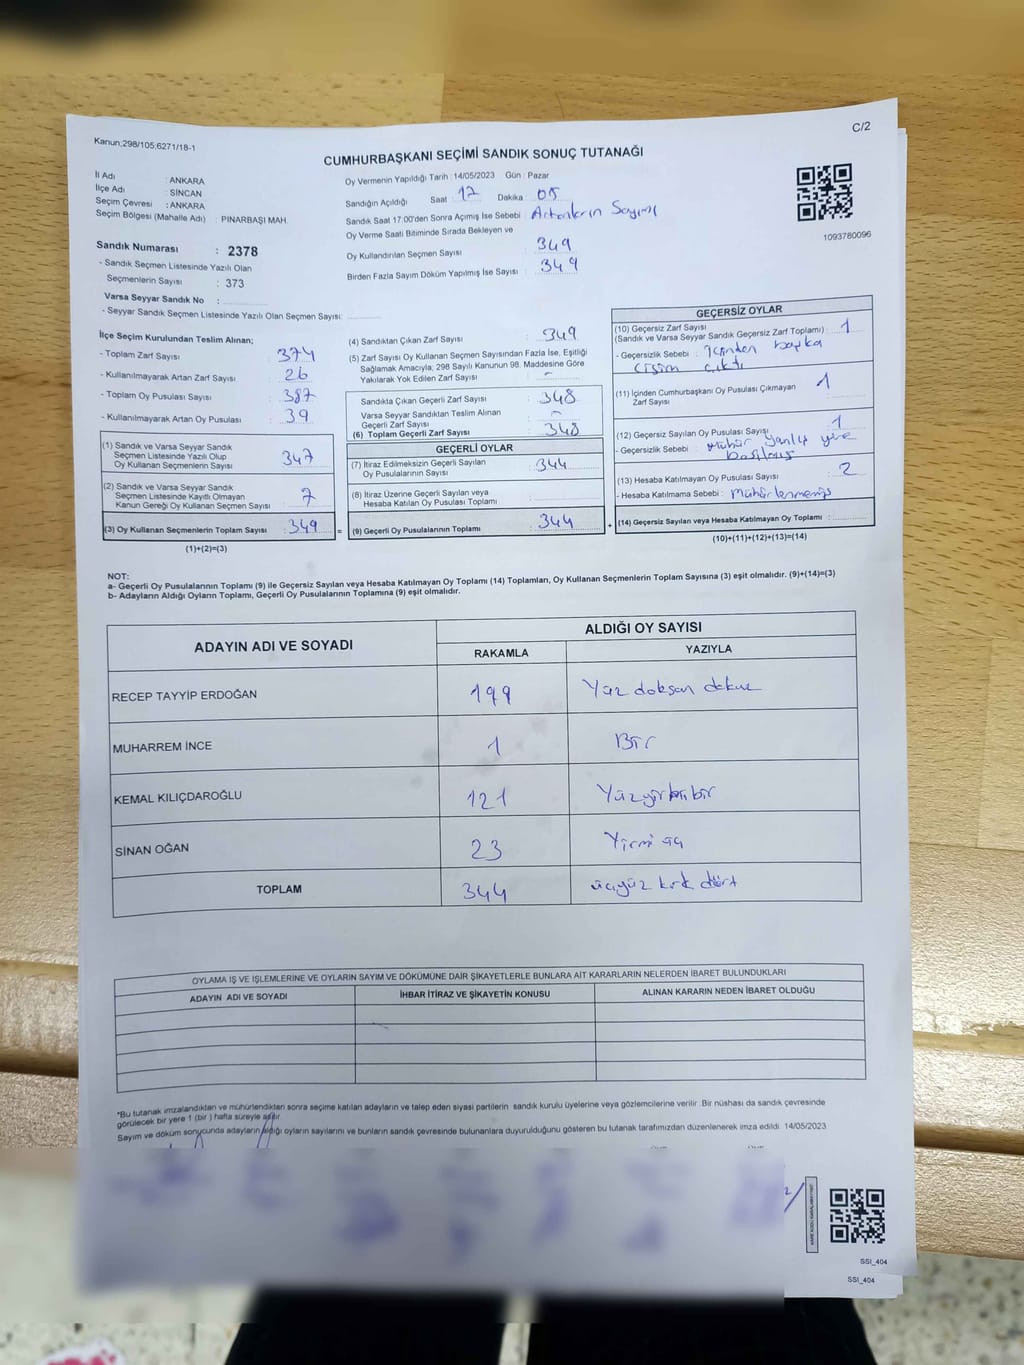 C/2
Kanun;298/105,6271/18-1
CUMHURBAŞKANI SEÇİMİ SANDIK SONUÇ TUTANAĞI
İl Adı : ANKARA
İlçe Adı : SİNCAN
Seçim Çevresi : ANKARA
Seçim Bölgesi (Mahalle Adı) : PINARBAŞI MAH.
Oy Vermenin Yapıldığı Tarih : 14/05/2023 Gün : Pazar
Sandığın Açıldığı Saat 17 Dakika 05
Sandık Saat 17:00'den Sonra Açımış İse Sebebi : Artanların Sayımı
Oy Verme Saati Bitiminde Sırada Bekleyen ve
Oy Kullandırılan Seçmen Sayısı : 349
Birden Fazla Sayım Döküm Yapılmış İse Sayısı : 349
1093780096
Sandık Numarası : 2378
- Sandık Seçmen Listesinde Yazılı Olan
Seçmenlerin Sayısı : 373
Varsa Seyyar Sandık No :
- Seyyar Sandık Seçmen Listesinde Yazılı Olan Seçmen Sayısı:
İlçe Seçim Kurulundan Teslim Alınan;
- Toplam Zarf Sayısı : 374
- Kullanılmayarak Artan Zarf Sayısı : 26
- Toplam Oy Pusulası Sayısı : 387
- Kullanılmayarak Artan Oy Pusulası : 39
(1) Sandık ve Varsa Seyyar Sandık
Seçmen Listesinde Yazılı Olup
Oy Kullanan Seçmenlerin Sayısı : 347
(2) Sandık ve Varsa Seyyar Sandık
Seçmen Listesinde Kayıtlı Olmayan
Kanun Gereği Oy Kullanan Seçmen Sayısı : 7
(3) Oy Kullanan Seçmenlerin Toplam Sayısı : 349 =
(1)+(2)=(3)
(4) Sandıktan Çıkan Zarf Sayısı : 349
(5) Zarf Sayısı Oy Kullanan Seçmen Sayısından Fazla İse, Eşitliği
Sağlamak Amacıyla; 298 Sayılı Kanunun 98. Maddesine Göre
Yakılarak Yok Edilen Zarf Sayısı : -
Sandıkta Çıkan Geçerli Zarf Sayısı : 348
Varsa Seyyar Sandıktan Teslim Alınan
Geçerli Zarf Sayısı : -
(6) Toplam Geçerli Zarf Sayısı : 348
GEÇERLİ OYLAR
(7) İtiraz Edilmeksizin Geçerli Sayılan
Oy Pusulalarının Sayısı : 344
(8) İtiraz Üzerine Geçerli Sayılan veya
Hesaba Katılan Oy Pusulası Toplamı :
(9) Geçerli Oy Pusulalarının Toplamı : 344 +
GEÇERSİZ OYLAR
(10) Geçersiz Zarf Sayısı
(Sandık ve Varsa Seyyar Sandık Geçersiz Zarf Toplamı) : 1
- Geçersizlik Sebebi : İçinden başka
cisim çıktı
(11) İçinden Cumhurbaşkanı Oy Pusulası Çıkmayan
Zarf Sayısı : 1
(12) Geçersiz Sayılan Oy Pusulası Sayısı : 1
- Geçersizlik Sebebi : Mühür yanlış yere
basılmış
(13) Hesaba Katılmayan Oy Pusulası Sayısı : 2
- Hesaba Katılmama Sebebi : Mühürlenmemiş
(14) Geçersiz Sayılan veya Hesaba Katılmayan Oy Toplamı :
(10)+(11)+(12)+(13)=(14)
NOT:
a- Geçerli Oy Pusulalarının Toplamı (9) ile Geçersiz Sayılan veya Hesaba Katılmayan Oy Toplamı (14) Toplamları, Oy Kullanan Seçmenlerin Toplam Sayısına (3) eşit olmalıdır. (9)+(14)=(3)
b- Adayların Aldığı Oyların Toplamı, Geçerli Oy Pusulalarının Toplamına (9) eşit olmalıdır.
ADAYIN ADI VE SOYADI ALDIĞI OY SAYISI
RAKAMLA YAZIYLA
RECEP TAYYİP ERDOĞAN 199 Yüz doksan dokuz
MUHARREM İNCE 1 Bir
KEMAL KILIÇDAROĞLU 121 Yüzyirmibir
SİNAN OĞAN 23 Yirmi üç
TOPLAM 344 üçyüz kırk dört
OYLAMA İŞ VE İŞLEMLERİNE VE OYLARIN SAYIM VE DÖKÜMÜNE DAİR ŞİKAYETLERLE BUNLARA AİT KARARLARIN NELERDEN İBARET BULUNDUKLARI
ADAYIN ADI VE SOYADI İHBAR İTİRAZ VE ŞİKAYETİN KONUSU ALINAN KARARIN NEDEN İBARET OLDUĞU
*Bu tutanak imzalandıktan ve mühürlendikten sonra seçime katılan adayların ve talep eden siyasi partilerin sandık kurulu üyelerine veya gözlemcilerine verilir. Bir nüshası da sandık çevresinde
görülecek bir yere 1 (bir ) hafta süreyle asılır.
Sayım ve döküm sonucunda adayların aldığı oyların sayılarını ve bunların sandık çevresinde bulunanlara duyurulduğunu gösteren bu tutanak tarafımızdan düzenlenerek imza edildi. 14/05/2023
SSI_404
SSI_404